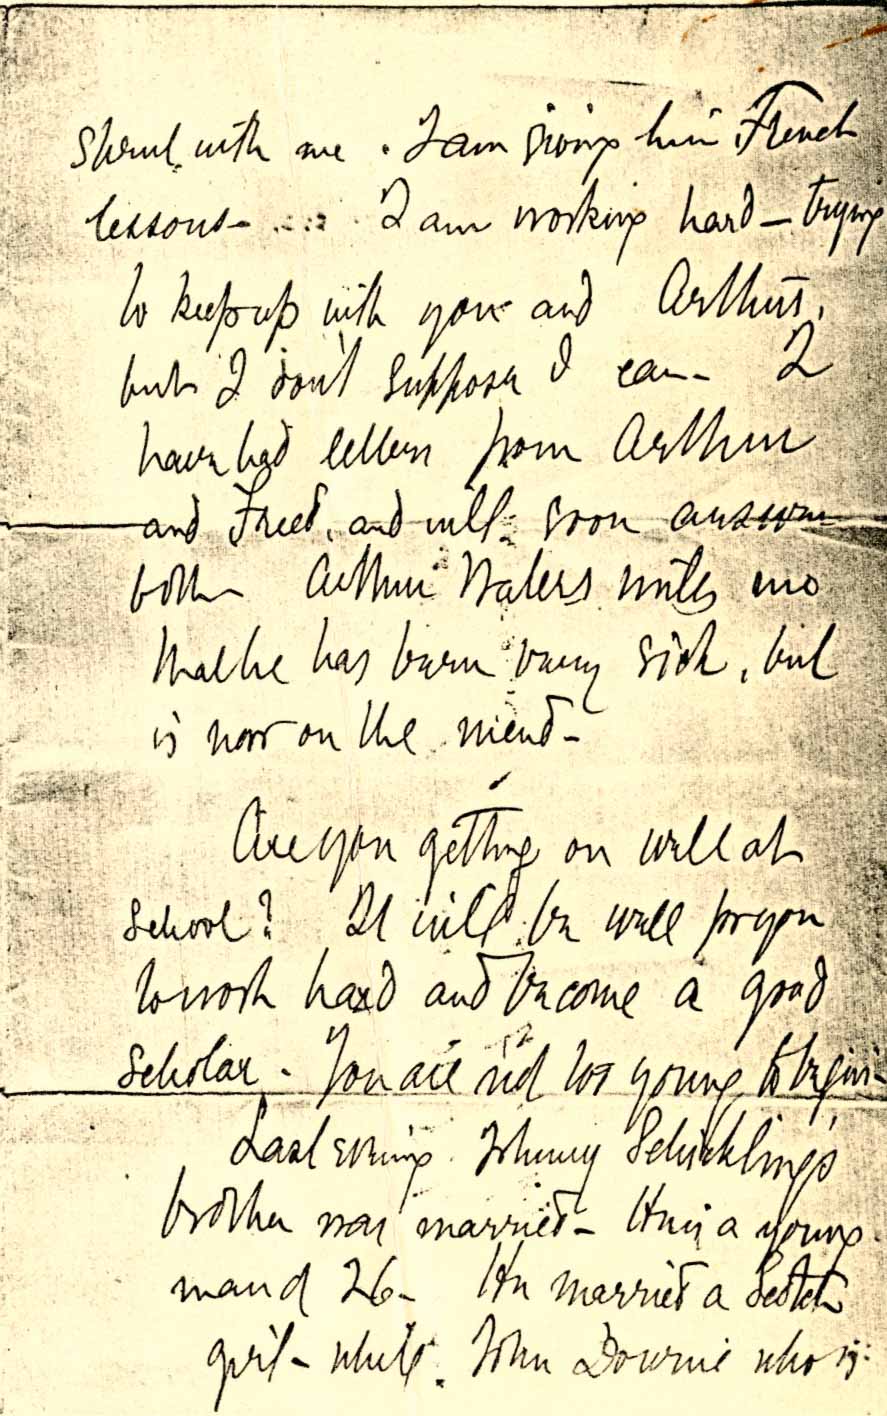 spend with me. I am giving him French
lessons- I am working hard - trying
to keep up with you and Arthur,
but I don't suppose I can- I
have had letters from Arthur
and Fred, and will soon answer
both Arthur Waters writes me
that he has been very sick, but
is now on the mend-
Are you getting on well at
school? It will be well for you
to work hard and become a good
scholar. You are not too young to begin-
Last evening Johnny Schickling's
brother was married- He is a young
man of 26- He married a Scotch
girl- while John Downie who is